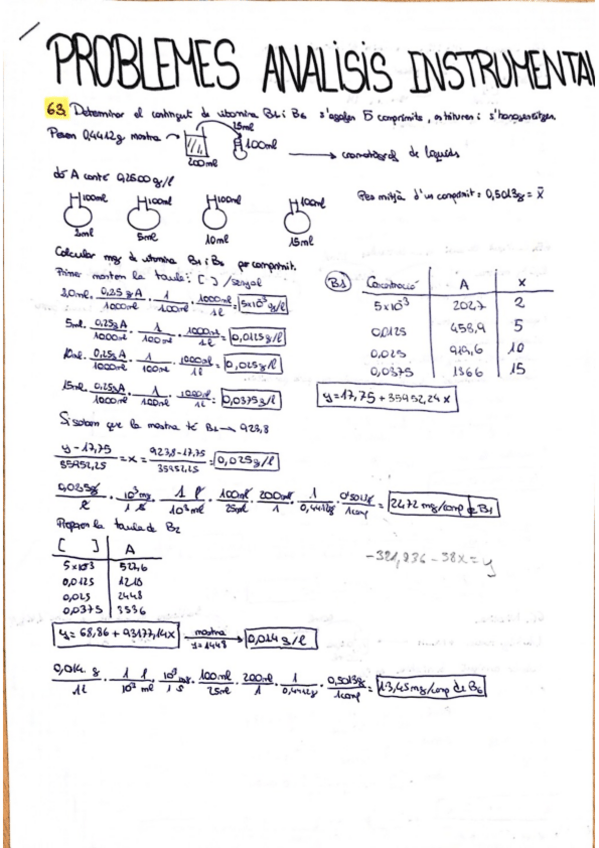 PROBLEMES ANALISIS INSTRUMENTAL
63. Determinar el contingut de vitamina B1 i B6 s'agafen 5 comprimits, es trituren i s'homogeneïtzen.
Pesem 0,4412g mostra
25ml
100ml
200ml
cromatògraf de líquids
dó A conté 0,2500 g/l
100ml 100ml 100ml 100ml
2ml 5ml 10ml 15ml
Pes mitjà d'un comprimit = 0,5013g = x̄
Calcular mg de vitamina B1 i B6 per comprimit.
Primer montem la taula: [ ] / senyal
2,0ml · 0,25g A / 1000ml · 1 / 100ml · 1000ml / 1l = 5x10³ g/l
5ml · 0,25g A / 1000ml · 1 / 100ml · 1000ml / 1l = 0,0125 g/l
10ml · 0,25g A / 1000ml · 1 / 100ml · 1000ml / 1l = 0,025 g/l
15ml · 0,25g A / 1000ml · 1 / 100ml · 1000ml / 1l = 0,0375 g/l
B1 Concentració A X
5x10⁻³ 202,7 2
0,0125 458,9 5
0,025 919,6 10
0,0375 1366 15
y = 17,75 + 35952,24 x
Si sabem que la mostra té B1 → 923,8
y - 17,75 / 35952,25 = x = 923,8 - 17,75 / 35952,25 = 0,025 g/l
0,025g / l · 10³ mg / 1 g · 1 l / 10³ ml · 100ml / 25ml · 200ml / 1 · 1 / 0,4412g · 0,5013g / 1comp = 22,72 mg/comp de B1
Preparem la taula de B2
[ ] A
5x10⁻³ 527,6
0,0125 1210
0,025 2448
0,0375 3536
-321,836 - 38x = y
y = 68,86 + 93177,14x mostra y = 1448 → 0,014 g/l
0,014 g / 1l · 1 l / 10³ ml · 10³ mg / 1 g · 100ml / 25ml · 200ml / 1 · 1 / 0,4412g · 0,5013g / 1comp = 13,45 mg/comp de B6